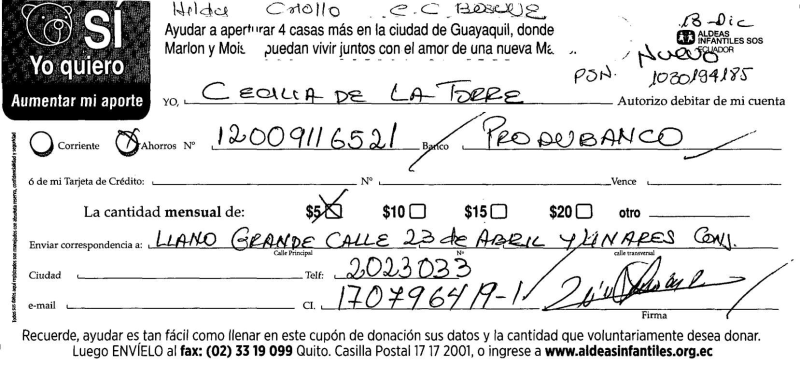 Hilda Criollo C.C. BOSQUE
18-Dic
SÍ
Yo quiero
Aumentar mi aporte
Ayudar a aperturar 4 casas más en la ciudad de Guayaquil, donde
Marlon y Mois puedan vivir juntos con el amor de una nueva Ma
ALDEAS
INFANTILES SOS
ECUADOR
Nuevo
PSN. 1030194185
YO, CECILIA DE LA TORRE Autorizo debitar de mi cuenta
Corriente Ahorros Nº 12009116521 Banco PRODUBANCO
ó de mi Tarjeta de Crédito: Nº Vence
La cantidad mensual de: $5 $10 $15 $20 otro
Enviar correspondencia a: LLANO GRANDE CALLE 23 de ABRIL Y LINARES CONJ.
Calle Principal Nº calle transversal
Ciudad Telf: 2023033
e-mail CI. 170796419-1
Firma
Recuerde, ayudar es tan fácil como llenar en este cupón de donación sus datos y la cantidad que voluntariamente desea donar.
Luego ENVÍELO al fax: (02) 33 19 099 Quito. Casilla Postal 17 17 2001, o ingrese a www.aldeasinfantiles.org.ec